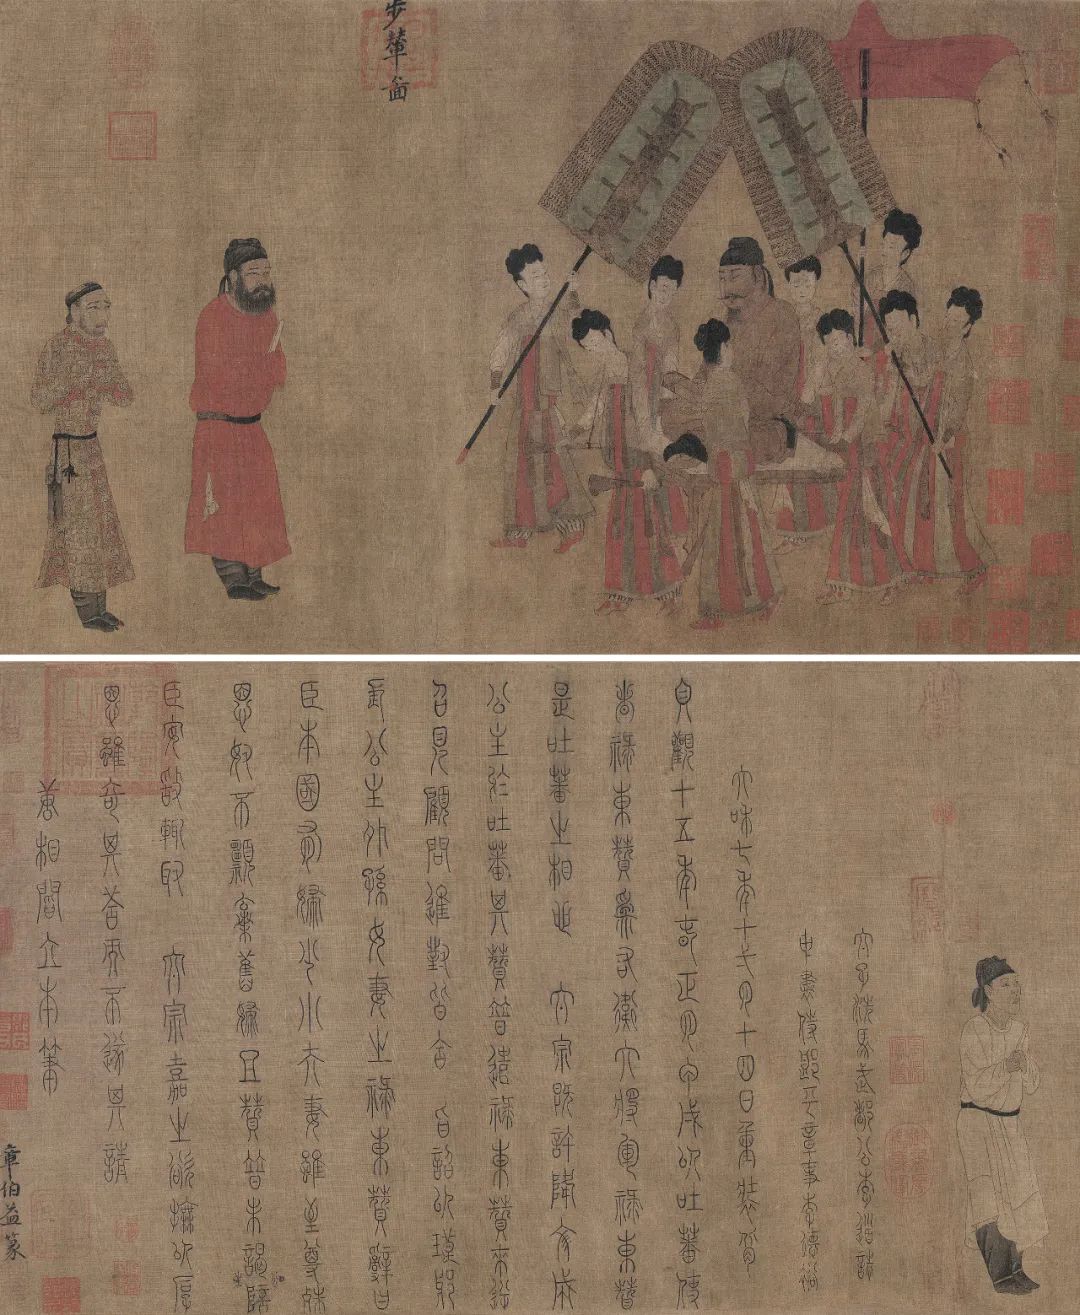 步輦圖
太子洗馬武都公李道誌
中書侍郎平章事李德裕
大和七年十一月十四日重裝背
貞觀十五年春正月甲戌以吐蕃使
者祿東贊爲右衛大將軍祿東贊
是吐蕃之相也 太宗既許降文成
公主於吐蕃其贊普遣祿東贊來逆
召見顧問進對皆合 旨詔以琅邪
長公主外孫女妻之祿東贊辭曰
臣本國有婦少小夫妻雖至尊殊
恩奴不願棄舊婦且贊普未謁公主陪
臣安敢輒取 太宗嘉之欲撫以厚
恩雖奇其答而不遂其請
唐相閻立本筆
章伯益篆